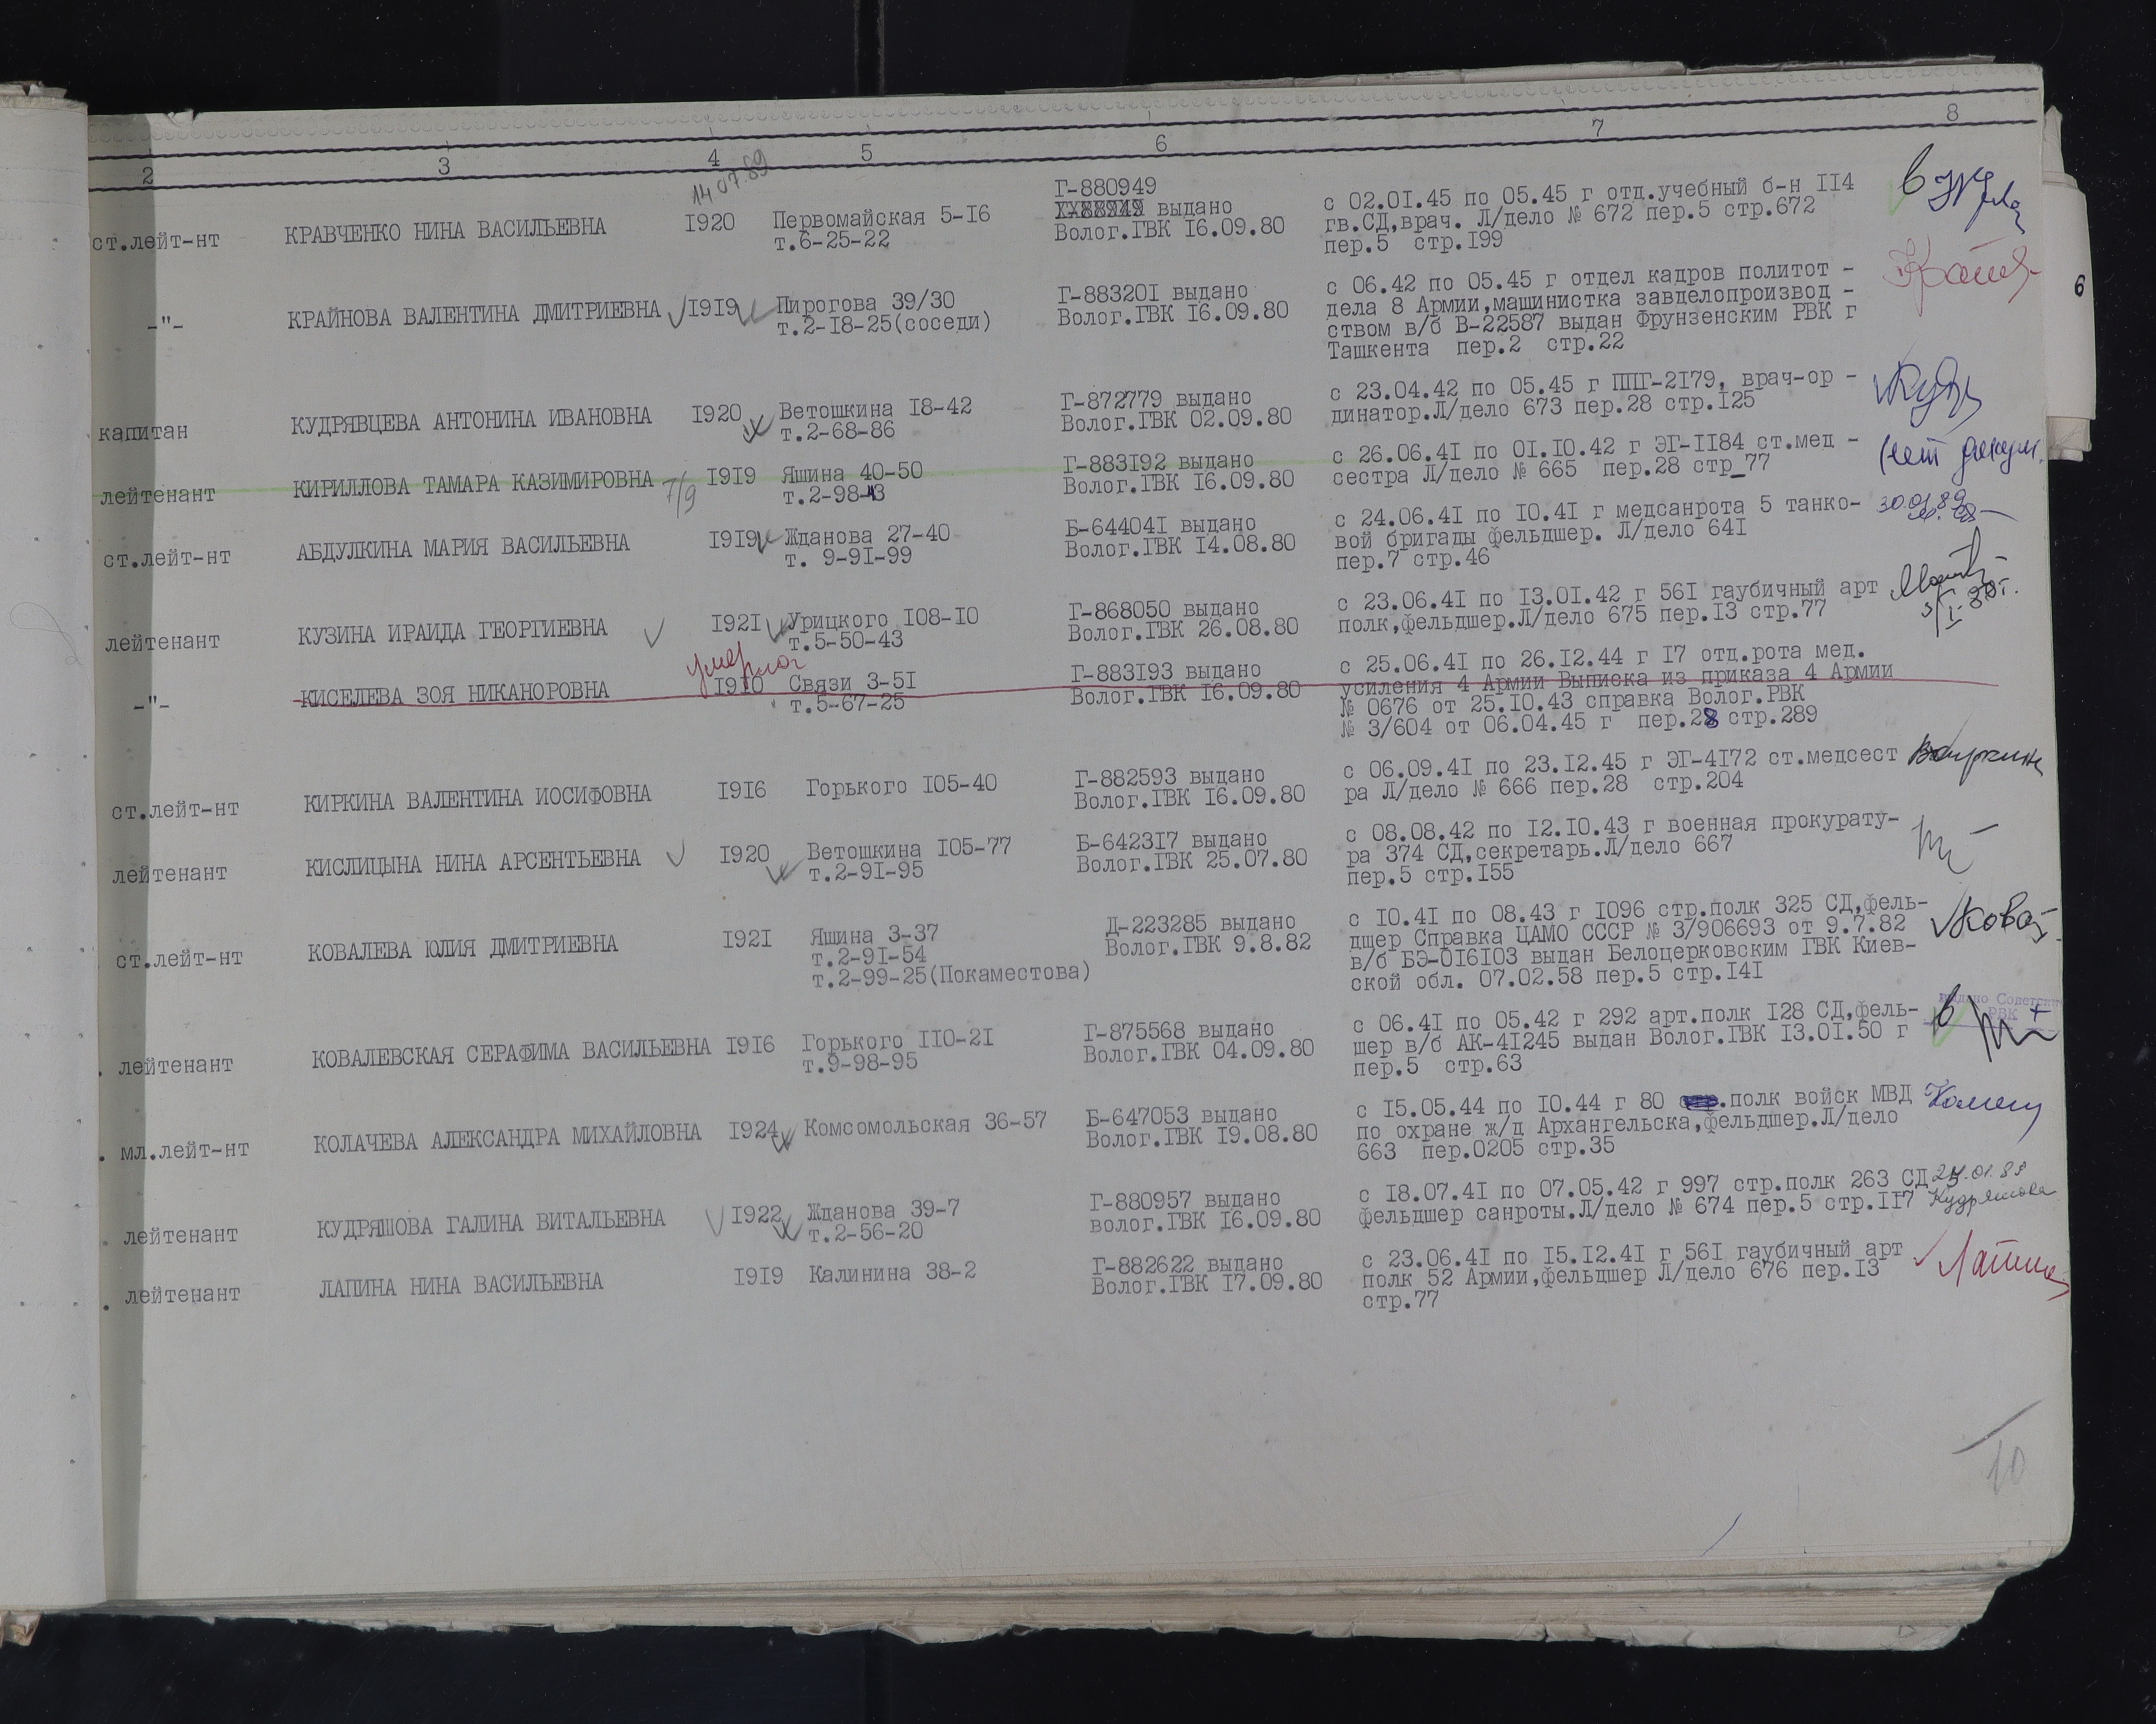 2 3 4 5 6 7 8
14.07.89
ст.лейт-нт КРАВЧЕНКО НИНА ВАСИЛЬЕВНА 1920 Первомайская 5-16
т.6-25-22
Г-880949
выдано
Волог.ГВК 16.09.80
с 02.01.45 по 05.45 г отд.учебный б-н 114
гв.СД,врач. Л/дело № 672 пер.5 стр.672
пер.5 стр.199
-"- КРАЙНОВА ВАЛЕНТИНА ДМИТРИЕВНА 1919 Пирогова 39/30
т.2-18-25(соседи)
Г-883201 выдано
Волог.ГВК 16.09.80
с 06.42 по 05.45 г отдел кадров политот -
дела 8 Армии,машинистка завделопроизвод -
ством в/б В-22587 выдан Фрунзенским РВК г
Ташкента пер.2 стр.22
6
капитан КУДРЯВЦЕВА АНТОНИНА ИВАНОВНА 1920 Ветошкина 18-42
т.2-68-86
Г-872779 выдано
Волог.ГВК 02.09.80
с 23.04.42 по 05.45 г ППГ-2179, врач-ор -
динатор.Л/дело 673 пер.28 стр.125
лейтенант КИРИЛЛОВА ТАМАРА КАЗИМИРОВНА 7/9 1919 Яшина 40-50
т.2-98-43
Г-883192 выдано
Волог.ГВК 16.09.80
с 26.06.41 по 01.10.42 г ЭГ-1184 ст.мед -
сестра Л/дело № 665 пер.28 стр_77
нет докум.
ст.лейт-нт АБДУЛКИНА МАРИЯ ВАСИЛЬЕВНА 1919 Жданова 27-40
т. 9-91-99
Б-644041 выдано
Волог.ГВК 14.08.80
с 24.06.41 по 10.41 г медсанрота 5 танко-
вой бригады фельдшер. Л/дело 641
пер.7 стр.46
лейтенант КУЗИНА ИРАИДА ГЕОРГИЕВНА 1921 Урицкого 108-10
т.5-50-43
Г-868050 выдано
Волог.ГВК 26.08.80
с 23.06.41 по 13.01.42 г 561 гаубичный арт
полк,фельдшер.Л/дело 675 пер.13 стр.77
умерла
-"- КИСЕЛЕВА ЗОЯ НИКАНОРОВНА 1910 Связи 3-51
т.5-67-25
Г-883193 выдано
Волог.ГВК 16.09.80
с 25.06.41 по 26.12.44 г 17 отд.рота мед.
усиления 4 Армии Выписка из приказа 4 Армии
№ 0676 от 25.10.43 справка Волог.РВК
№ 3/604 от 06.04.45 г пер.28 стр.289
ст.лейт-нт КИРКИНА ВАЛЕНТИНА ИОСИФОВНА 1916 Горького 105-40
Г-882593 выдано
Волог.ГВК 16.09.80
с 06.09.41 по 23.12.45 г ЭГ-4172 ст.медсест
ра Л/дело № 666 пер.28 стр.204
лейтенант КИСЛИЦЫНА НИНА АРСЕНТЬЕВНА 1920 Ветошкина 105-77
т.2-91-95
Б-642317 выдано
Волог.ГВК 25.07.80
с 08.08.42 по 12.10.43 г военная прокурату-
ра 374 СД,секретарь.Л/дело 667
пер.5 стр.155
ст.лейт-нт КОВАЛЕВА ЮЛИЯ ДМИТРИЕВНА 1921 Яшина 3-37
т.2-91-54
т.2-99-25(Покаместова)
Д-223285 выдано
Волог.ГВК 9.8.82
с 10.41 по 08.43 г 1096 стр.полк 325 СД,фель-
дшер Справка ЦАМО СССР № 3/906693 от 9.7.82
в/б БЭ-016103 выдан Белоцерковским ГВК Киев-
ской обл. 07.02.58 пер.5 стр.141
лейтенант КОВАЛЕВСКАЯ СЕРАФИМА ВАСИЛЬЕВНА 1916 Горького 110-21
т.9-98-95
Г-875568 выдано
Волог.ГВК 04.09.80
с 06.41 по 05.42 г 292 арт.полк 128 СД,фель-
шер в/б АК-41245 выдан Волог.ГВК 13.01.50 г
пер.5 стр.63
РВК
мл.лейт-нт КОЛАЧЕВА АЛЕКСАНДРА МИХАЙЛОВНА 1924 Комсомольская 36-57
Б-647053 выдано
Волог.ГВК 19.08.80
с 15.05.44 по 10.44 г 80 .полк войск МВД
по охране ж/д Архангельска,фельдшер.Л/дело
663 пер.0205 стр.35
лейтенант КУДРЯШОВА ГАЛИНА ВИТАЛЬЕВНА 1922 Жданова 39-7
т.2-56-20
Г-880957 выдано
волог.ГВК 16.09.80
с 18.07.41 по 07.05.42 г 997 стр.полк 263 СД
фельдшер санроты.Л/дело № 674 пер.5 стр.117
Кудряшова
лейтенант ЛАПИНА НИНА ВАСИЛЬЕВНА 1919 Калинина 38-2
Г-882622 выдано
Волог.ГВК 17.09.80
с 23.06.41 по 15.12.41 г 561 гаубичный арт
полк 52 Армии,фельдшер Л/дело 676 пер.13
стр.77
10